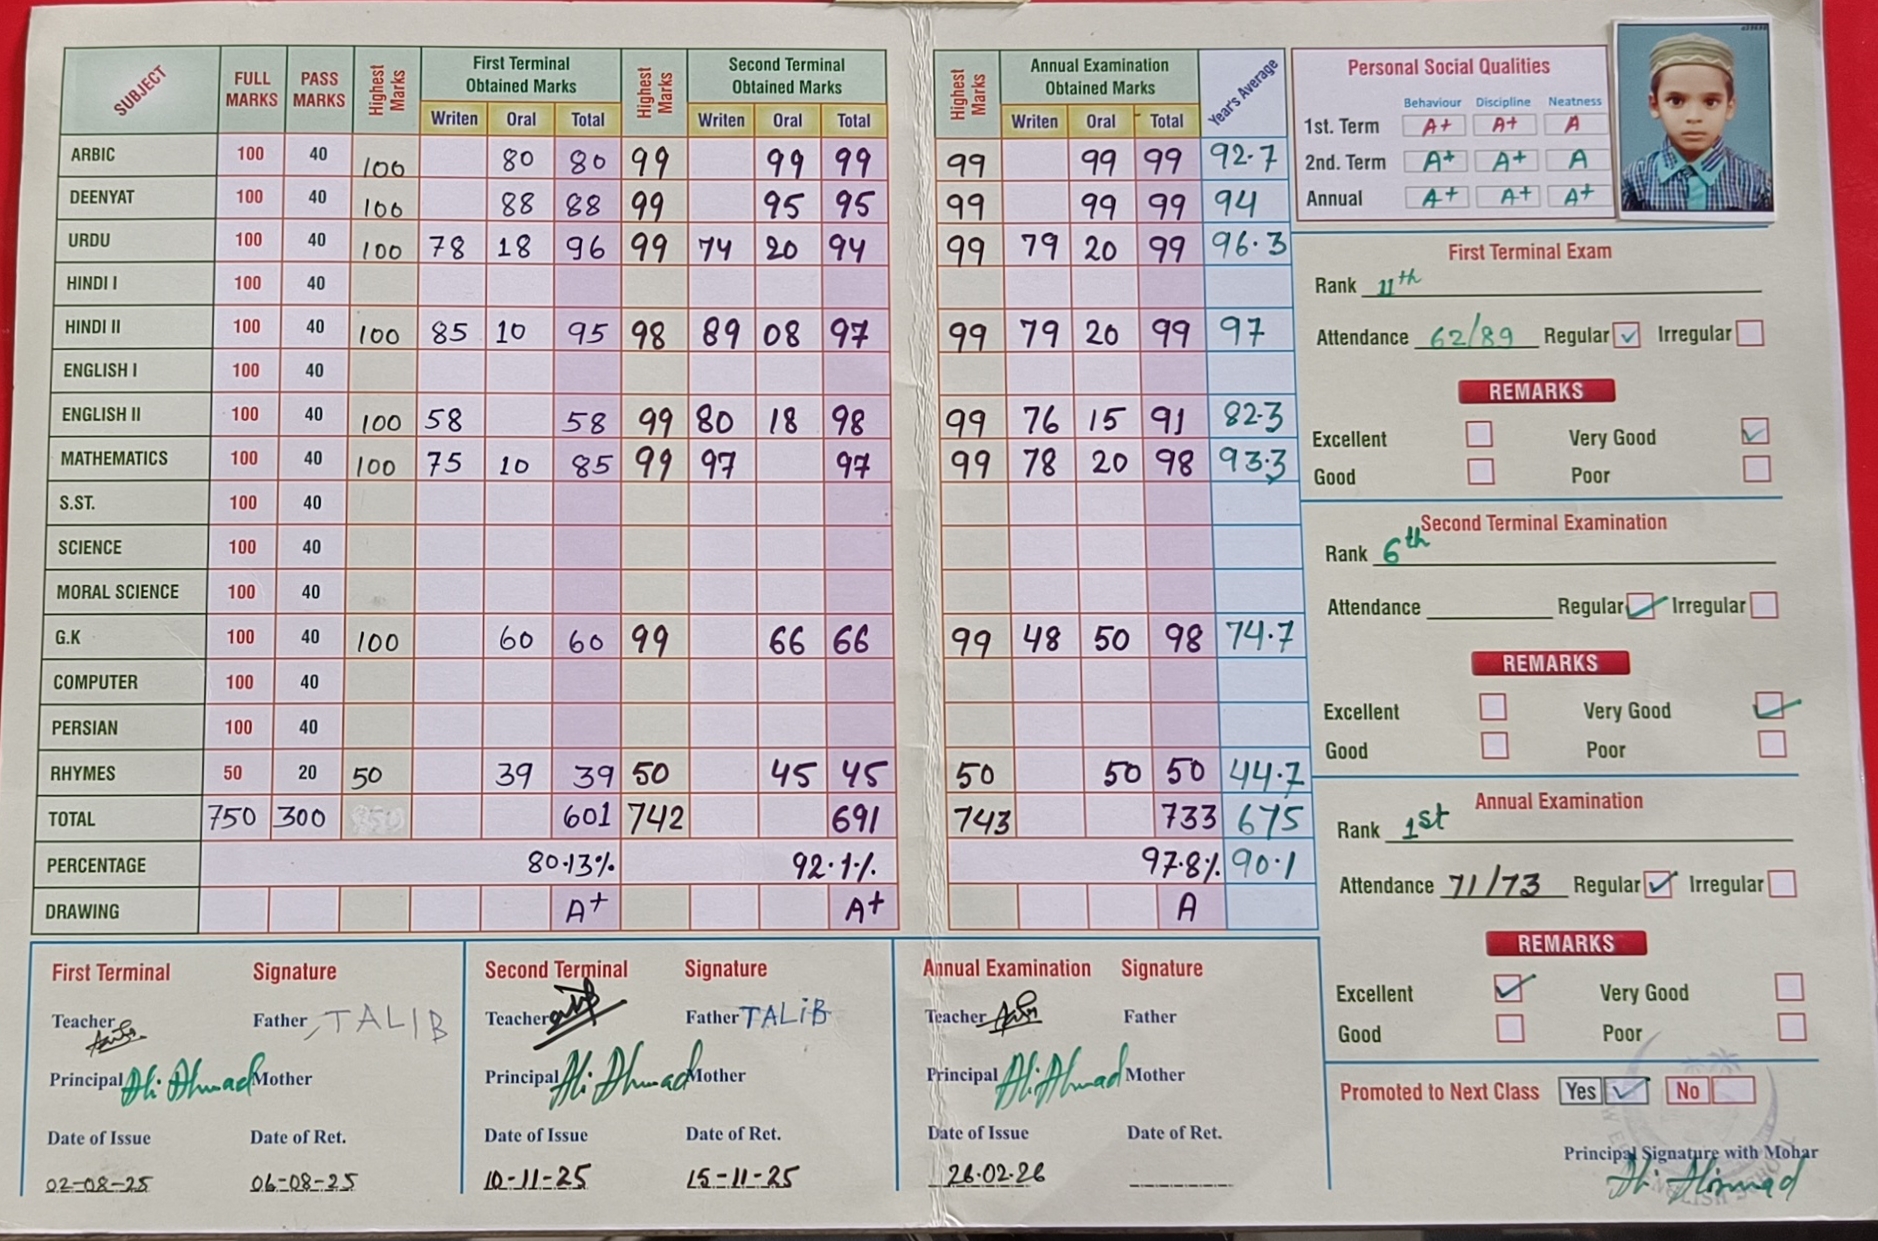 SUBJECT FULL MARKS PASS MARKS Highest Marks First Terminal Obtained Marks Highest Marks Second Terminal Obtained Marks Highest Marks Annual Examination Obtained Marks Year's Average
Writen Oral Total Writen Oral Total Writen Oral Total
ARBIC 100 40 100 80 80 99 99 99 99 99 99 92.7
DEENYAT 100 40 100 88 88 99 95 95 99 99 99 94
URDU 100 40 100 78 18 96 99 74 20 94 99 79 20 99 96.3
HINDI I 100 40
HINDI II 100 40 100 85 10 95 98 89 08 97 99 79 20 99 97
ENGLISH I 100 40
ENGLISH II 100 40 100 58 58 99 80 18 98 99 76 15 91 82.3
MATHEMATICS 100 40 100 75 10 85 99 97 97 99 78 20 98 93.3
S.ST. 100 40
SCIENCE 100 40
MORAL SCIENCE 100 40
G.K 100 40 100 60 60 99 66 66 99 48 50 98 74.7
COMPUTER 100 40
PERSIAN 100 40
RHYMES 50 20 50 39 39 50 45 45 50 50 50 44.7
TOTAL 750 300 601 742 691 743 733 675
PERCENTAGE 80.13% 92.1% 97.8% 90.1
DRAWING A+ A+ A
First Terminal Signature
Teacher Father TALIB
Principal Ali Ahmad Mother
Date of Issue Date of Ret.
02-08-25 06-08-25
Second Terminal Signature
Teacher Father TALiB
Principal Ali Ahmad Mother
Date of Issue Date of Ret.
10-11-25 15-11-25
Annual Examination Signature
Teacher Father
Principal Ali Ahmad Mother
Date of Issue Date of Ret.
26.02.26
Personal Social Qualities
Behaviour Discipline Neatness
1st. Term A+ A+ A
2nd. Term A+ A+ A
Annual A+ A+ A+
First Terminal Exam
Rank 11th
Attendance 62/89 Regular Irregular
REMARKS
Excellent Very Good
Good Poor
Second Terminal Examination
Rank 6th
Attendance Regular Irregular
REMARKS
Excellent Very Good
Good Poor
Annual Examination
Rank 1st
Attendance 71/73 Regular Irregular
REMARKS
Excellent Very Good
Good Poor
Promoted to Next Class Yes No
Principal Signature with Mohar
Ali Ahmad